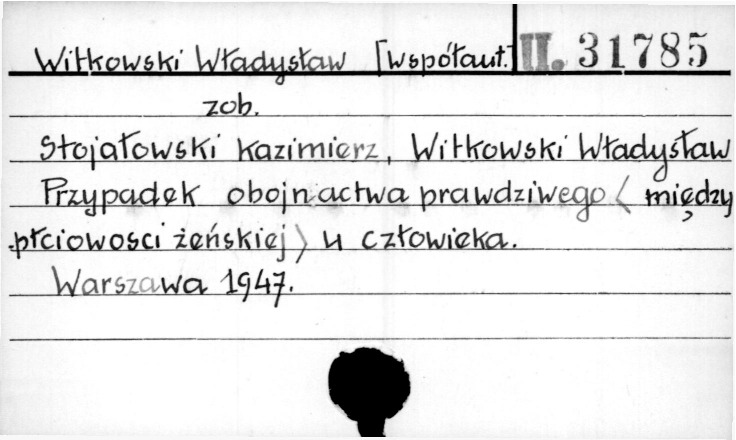 Witkowski Władysław [współaut.] II. 31785
zob.
Stojałowski Kazimierz, Witkowski Władysław
Przypadek obojnactwa prawdziwego < między
płciowosci żeńskiej > u człowieka.
Warszawa 1947.